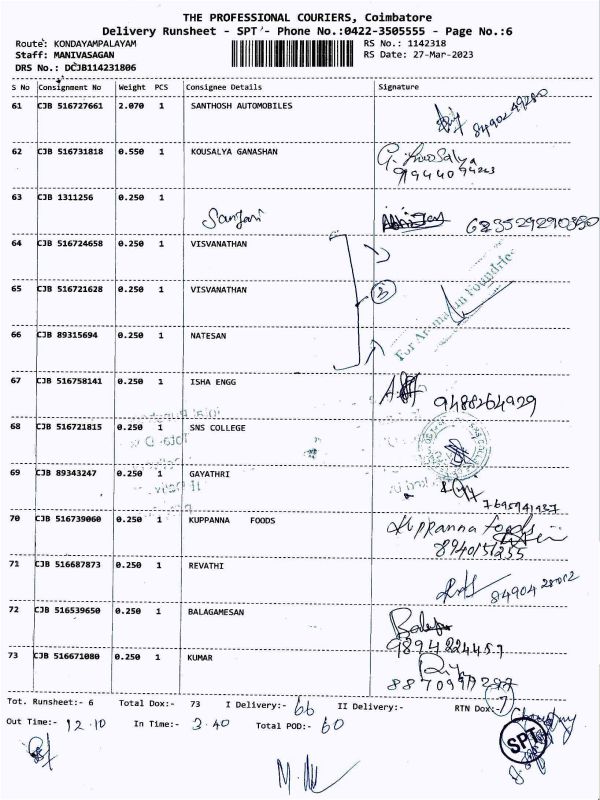 THE PROFESSIONAL COURIERS, Coimbatore
Delivery Runsheet - SPT - Phone No.:0422-3505555 - Page No.:6
Route: KONDAYAMPALAYAM RS No.: 1142318
Staff: MANIVASAGAN RS Date: 27-Mar-2023
DRS No.: DCJB114231806
S No Consignment No Weight PCS Consignee Details Signature
61 CJB 516727661 2.070 1 SANTHOSH AUTOMOBILES
62 CJB 516731818 0.550 1 KOUSALYA GANASHAN G. Kousalya
63 CJB 1311256 0.250 1
64 CJB 516724658 0.250 1 VISVANATHAN
65 CJB 516721628 0.250 1 VISVANATHAN
66 CJB 89315694 0.250 1 NATESAN
67 CJB 516758141 0.250 1 ISHA ENGG 9488264929
68 CJB 516721815 0.250 1 SNS COLLEGE
69 CJB 89343247 0.250 1 GAYATHRI
70 CJB 516739060 0.250 1 KUPPANNA FOODS Kuppanna foods
8940151255
71 CJB 516687873 0.250 1 REVATHI
72 CJB 516539650 0.250 1 BALAGAMESAN
9894224457
73 CJB 516671080 0.250 1 KUMAR
Tot. Runsheet:- 6 Total Dox:- 73 I Delivery:- 66 II Delivery:- RTN Dox:- 7
Out Time:- 12.10 In Time:- 3.40 Total POD:- 60
SPT